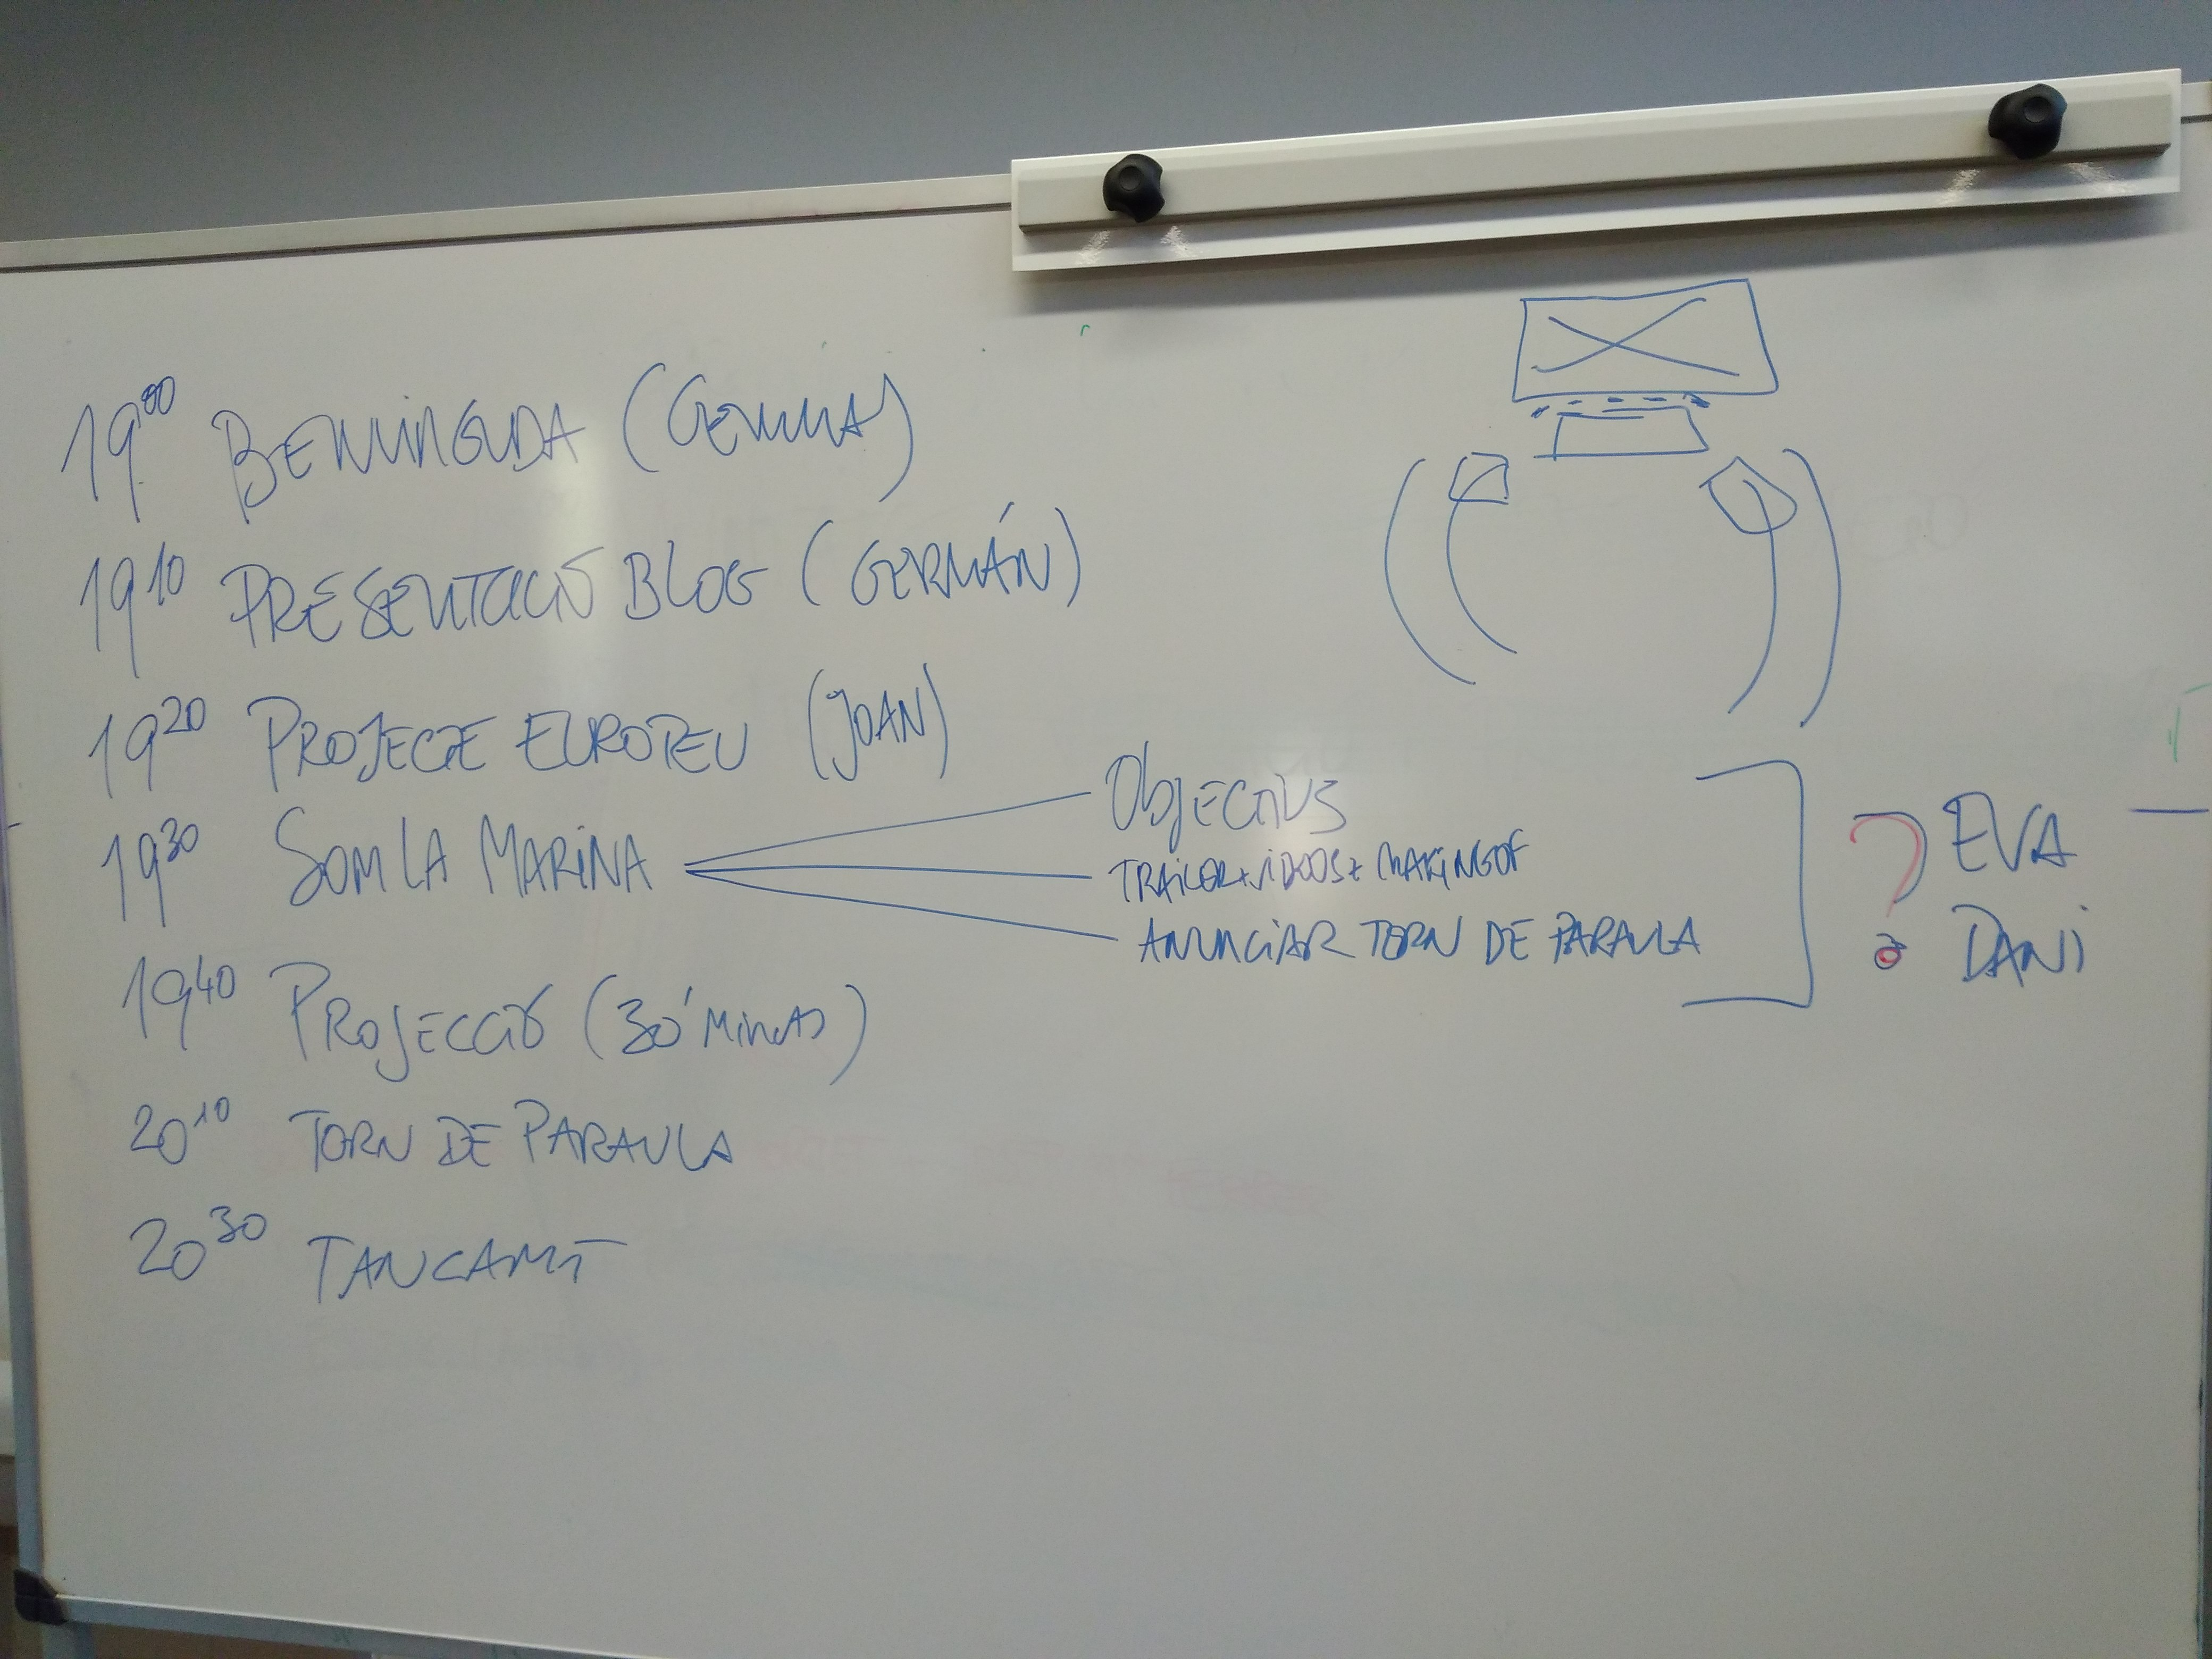 19⁰⁰ BENVINGUDA (GEMMA)
19¹⁰ PRESENTACIÓ BLOG (GERMÁN)
19²⁰ PROJECTE EUROPEU (JOAN)
19³⁰ SOM LA MARINA
OBJECTIUS
TRAILER + VIDEOS + MAKING OF
ANUNCIAR TORN DE PARAULA
? EVA
DANI
19⁴⁰ PROJECCIÓ (30' MINUTS)
20¹⁰ TORN DE PARAULA
20³⁰ TANCAMT